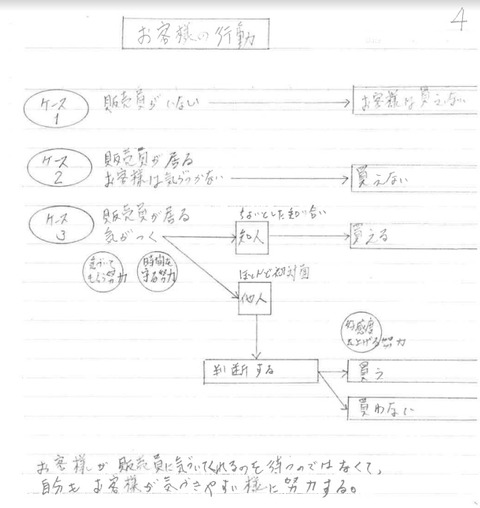 4
お客様の行動
ケース
1
販売員がいない
お客様は買えない
ケース
2
販売員が居る
お客様は気がつかない
買えない
ケース
3
販売員が居る
気がつく
ちょいとした知り合い
知人
買える
気がついて
もらう努力
時間を
守る努力
ほとんど初対面
他人
判断する
好感度
を上げる努力
買う
買わない
お客様が販売員に気づいてくれるのを待つのではなくて、
自分もお客様が気がつきやすい様に努力する。